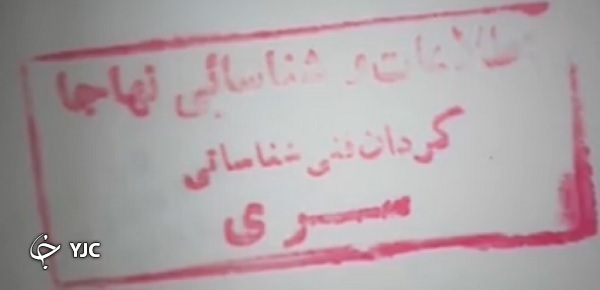 اطلاعات و شناسائی نهاجا
گردان فنی شناسائی
سری
YJC